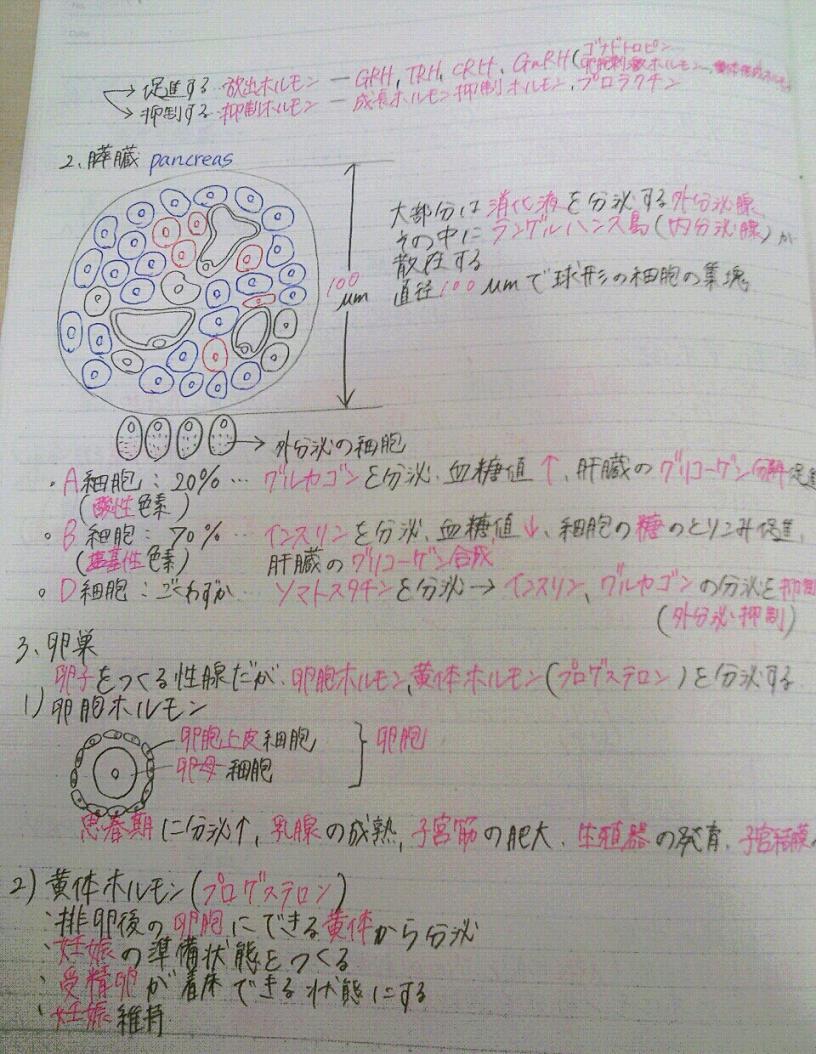 促進する 放出ホルモン ー GRH, TRH, CRH, GnRH(ゴナドトロピン
卵胞刺激ホルモン, 黄体
抑制する 抑制ホルモン ー 成長ホルモン抑制ホルモン, プロラクチン
2、膵臓 pancreas
100
μm
大部分は消化液を分泌する外分泌腺
その中にランゲルハンス島(内分泌腺)が
散在する
直径100μmで球形の細胞の集塊
→外分泌の細胞
・A細胞:20%… グルカゴンを分泌、血糖値↑、肝臓のグリコーゲン分解促進
(酸性色素)
・B細胞:70%… インスリンを分泌、血糖値↓、細胞の糖のとりこみ促進、
(塩基性色素) 肝臓のグリコーゲン合成
・D細胞:ごくわずか ソマトスタチンを分泌→インスリン、グルカゴンの分泌を抑制
(外分泌抑制)
3、卵巣
卵子をつくる性腺だが、卵胞ホルモン、黄体ホルモン(プロゲステロン)を分泌する
1)卵胞ホルモン
卵胞上皮細胞
卵母細胞
卵胞
思春期に分泌↑, 乳腺の成熟, 子宮筋の肥大、生殖器の発育、子宮
2)黄体ホルモン(プロゲステロン)
・排卵後の卵胞にできる黄体から分泌
・妊娠の準備状態をつくる
・受精卵が着床できる状態にする
・妊娠維持